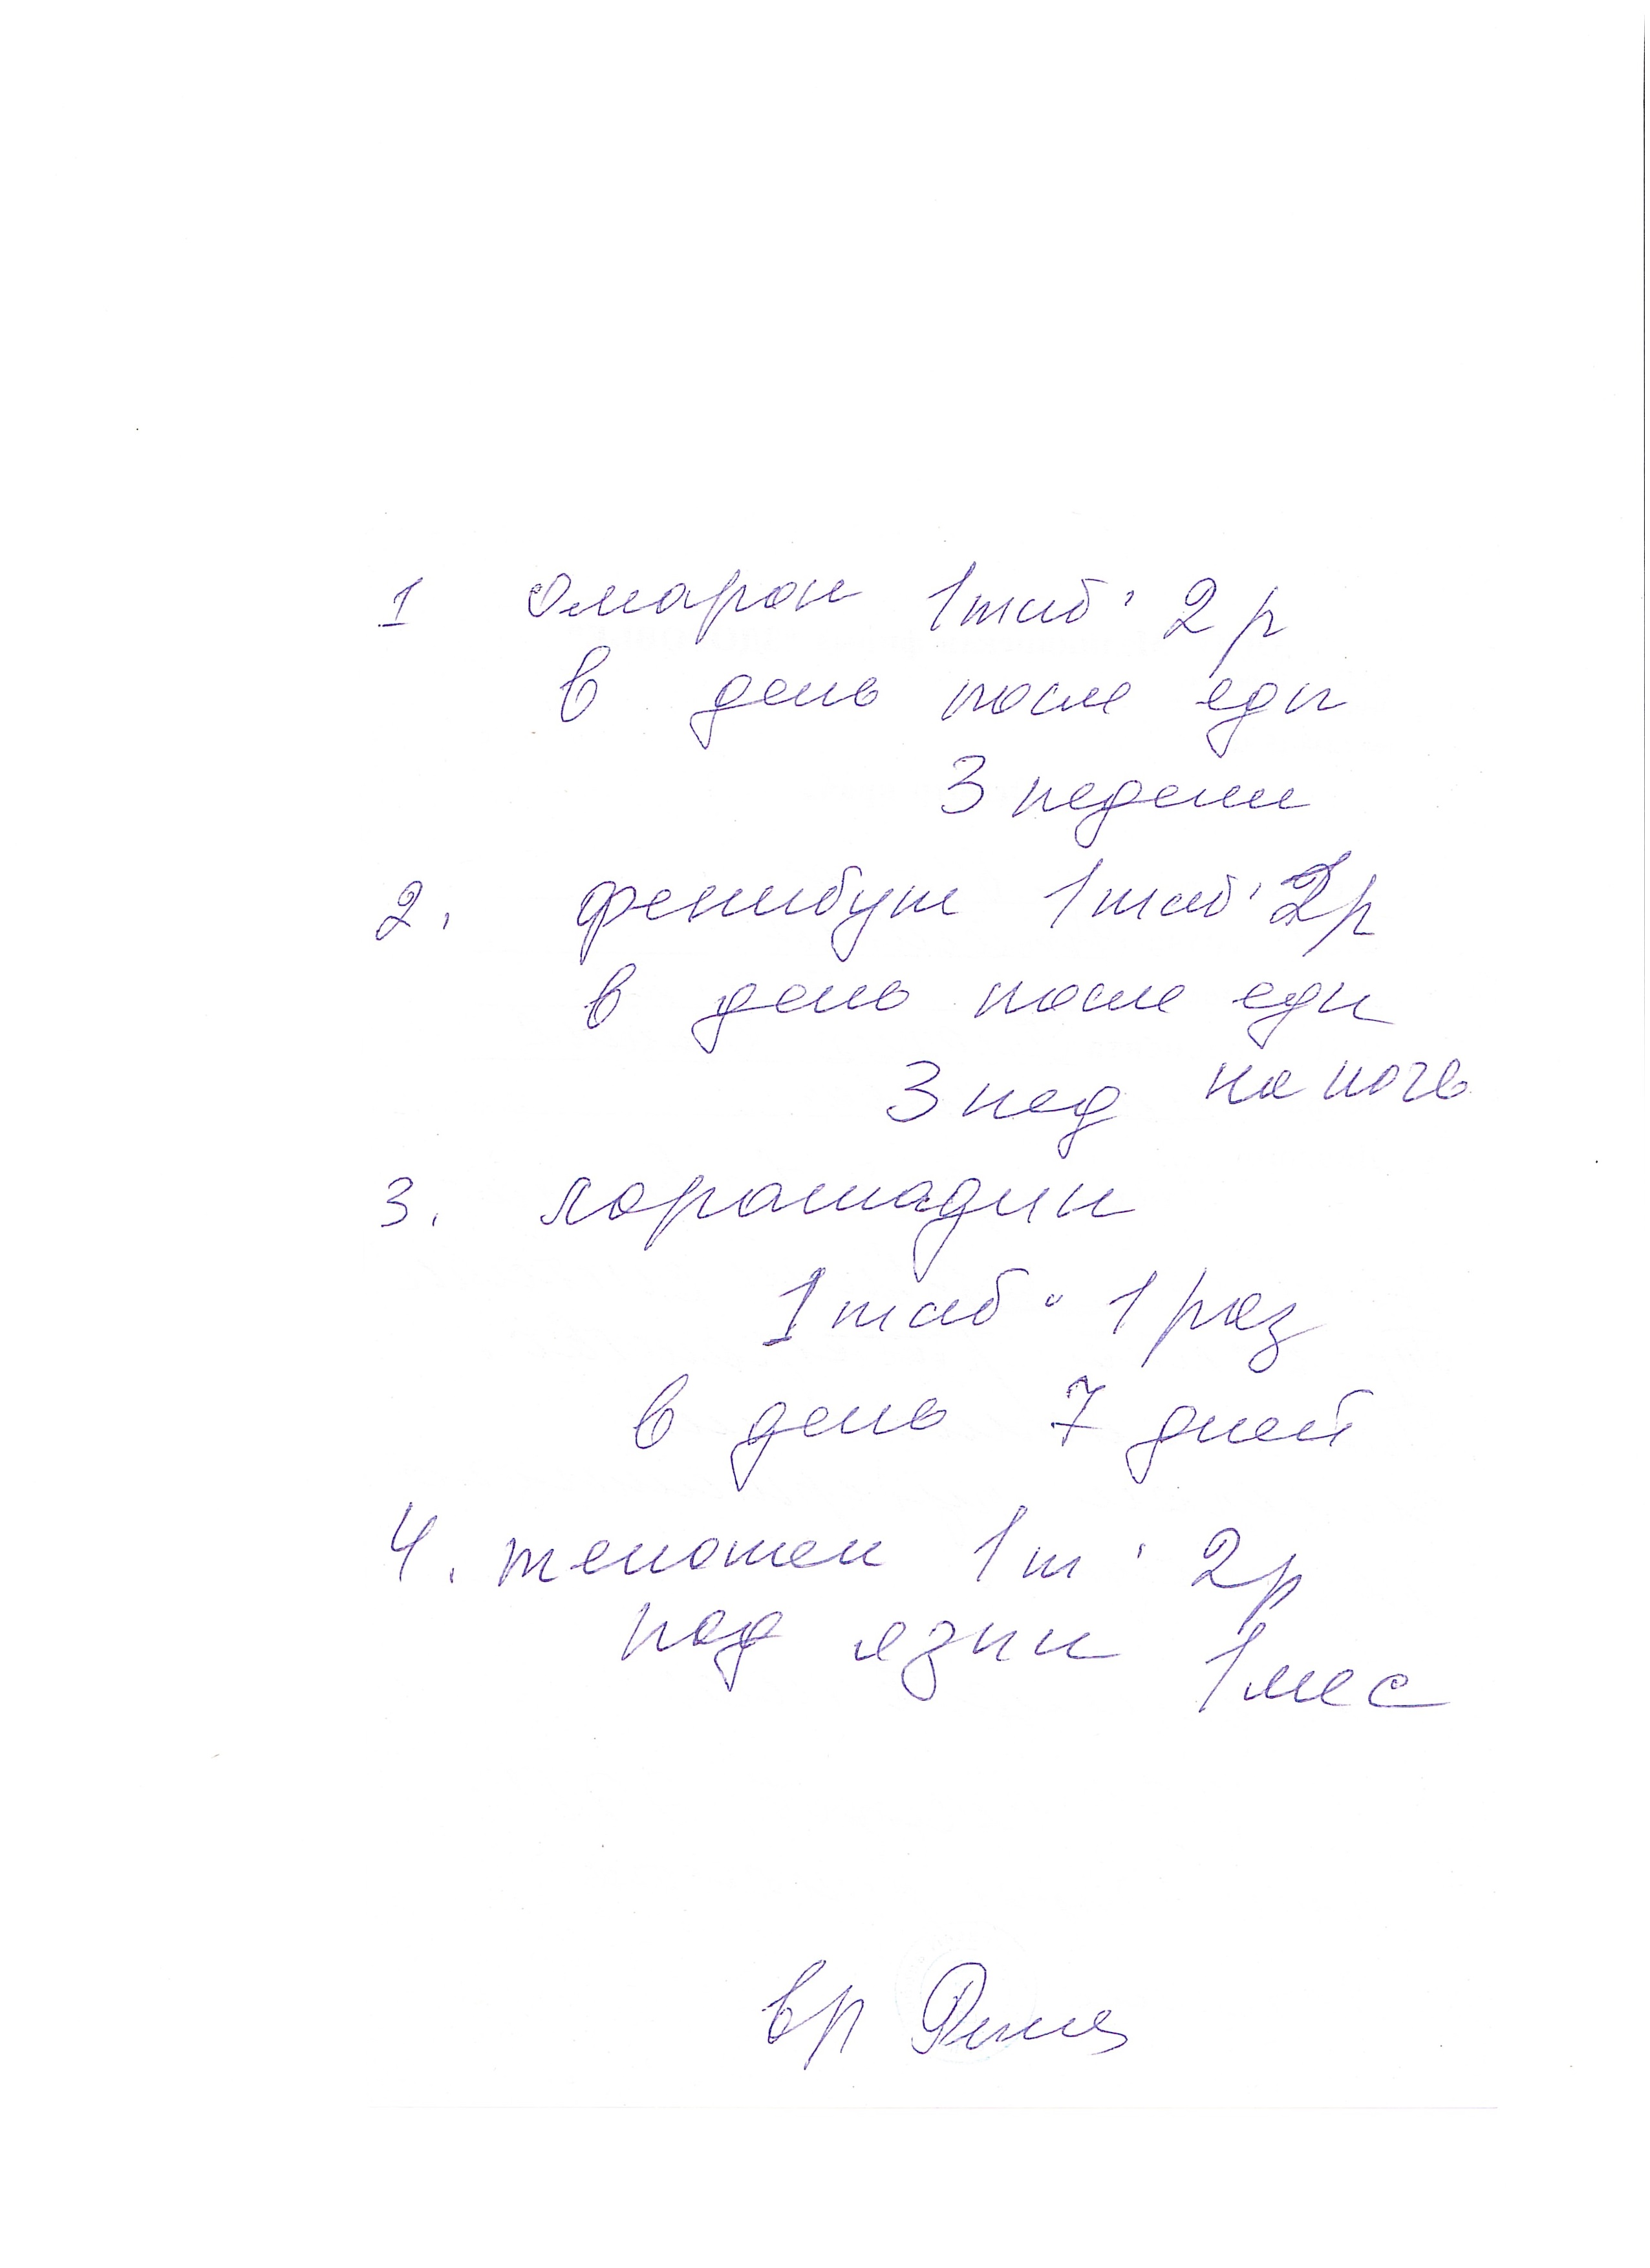 1 Омарон 1 таб · 2 р
в день после еды
3 недели
2. фенибут 1 таб · 2 р
в день после еды
3 нед на ночь
3. лоратадин
1 таб · 1 раз
в день 7 дней
4. тенотен 1 т · 2 р
под язык 1 мес
вр